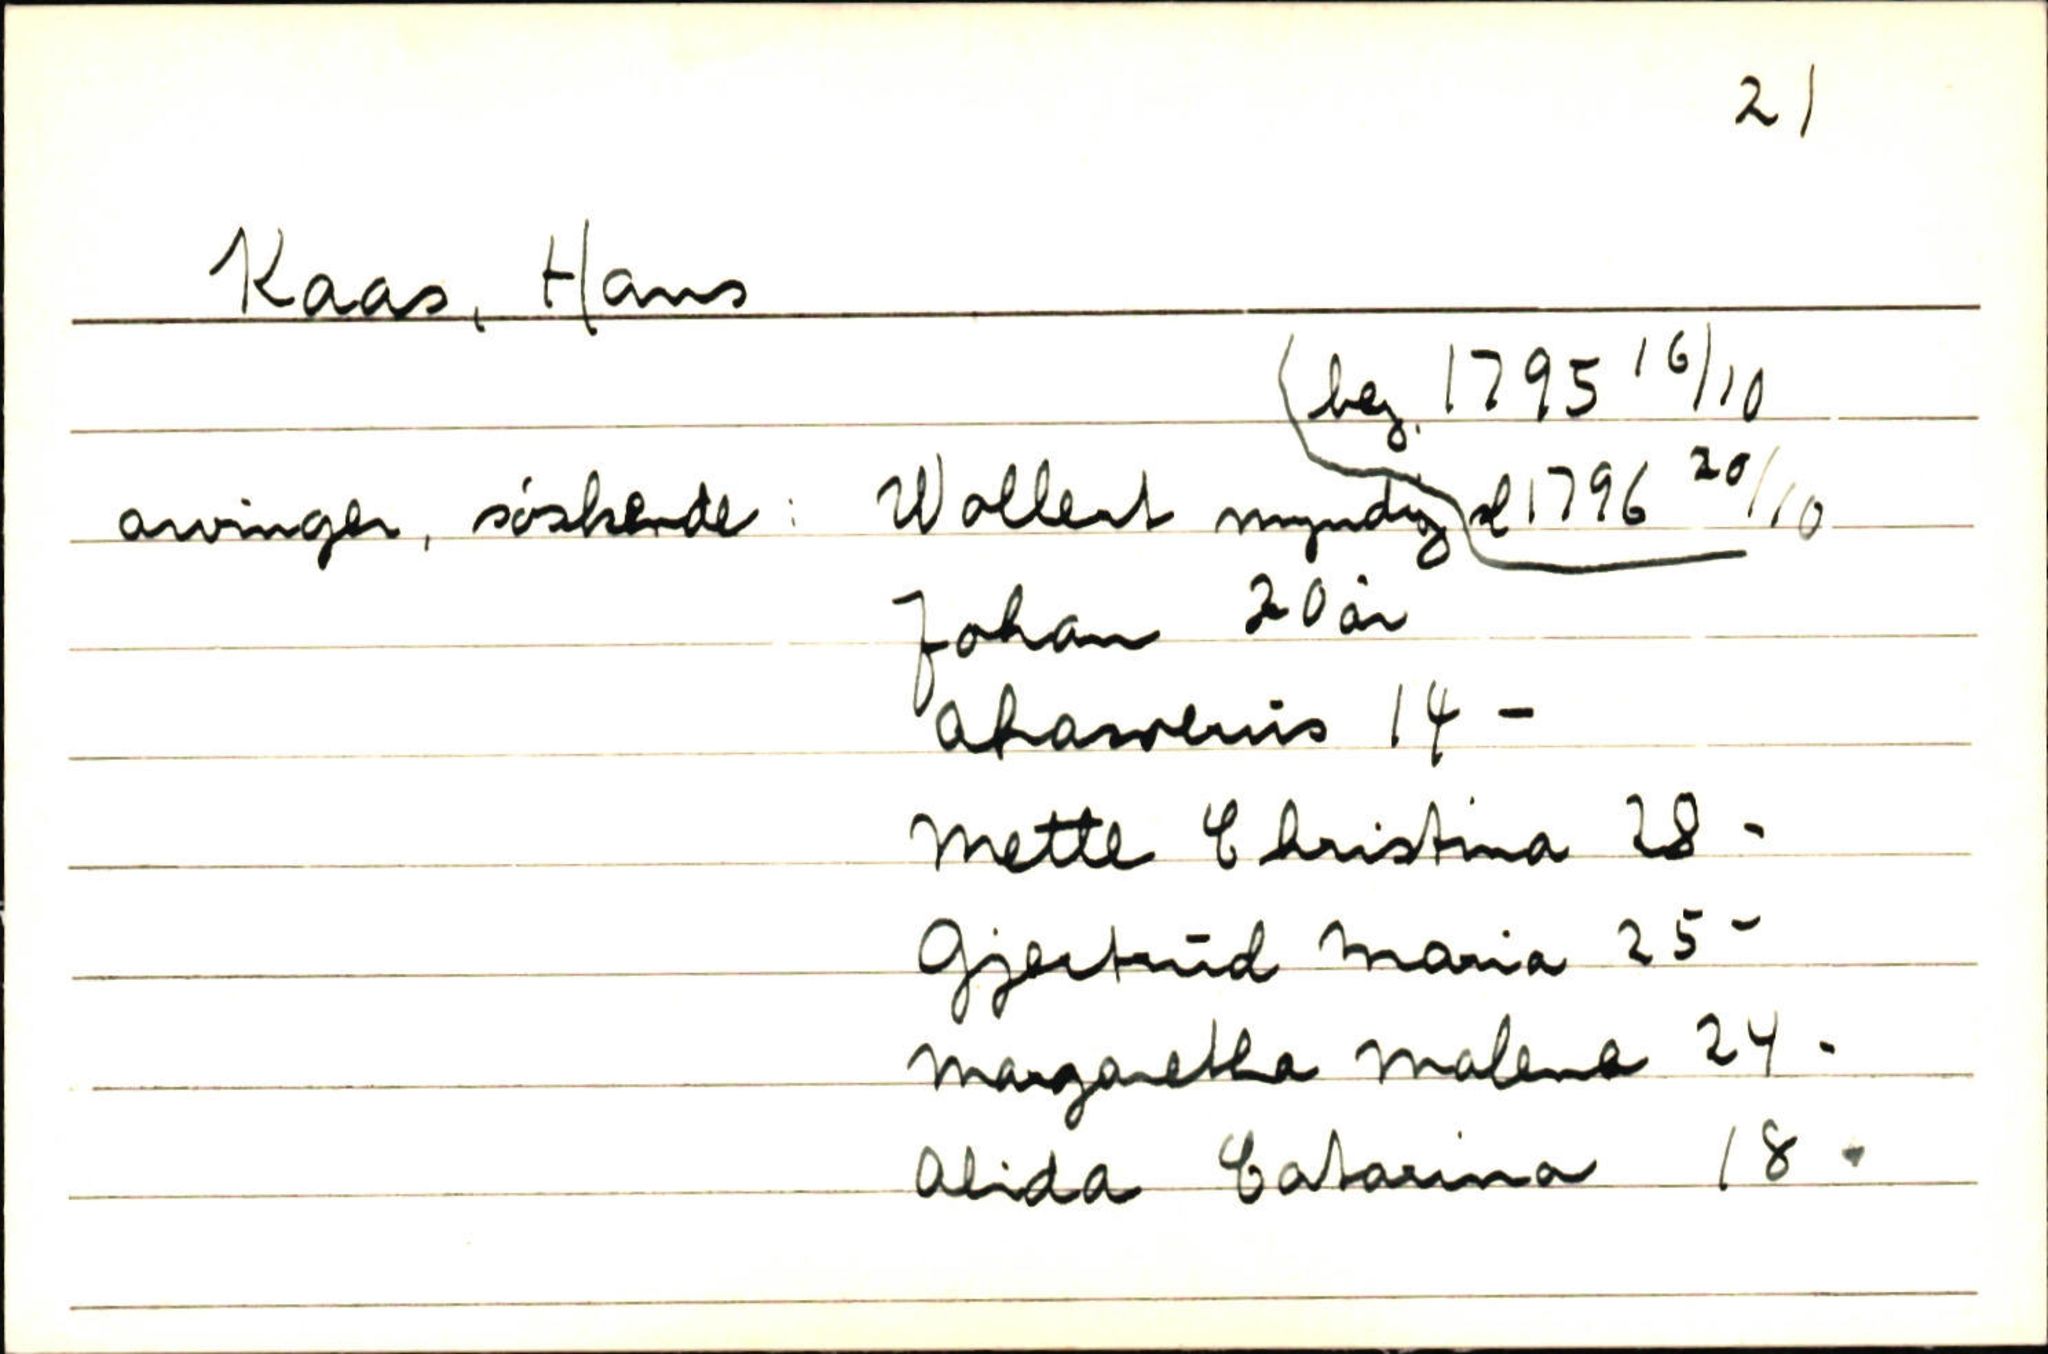 21
Kaas, Hans
beg. 1795 16/10
arvinger, søskende: Wollert myndig sl 1796 20/10
Johan 20 år
Ahasverus 14 -
Mette Christina 28 -
Gjertrud Maria 25 -
Margaretha Malena 24 -
Alida Catarina 18 -